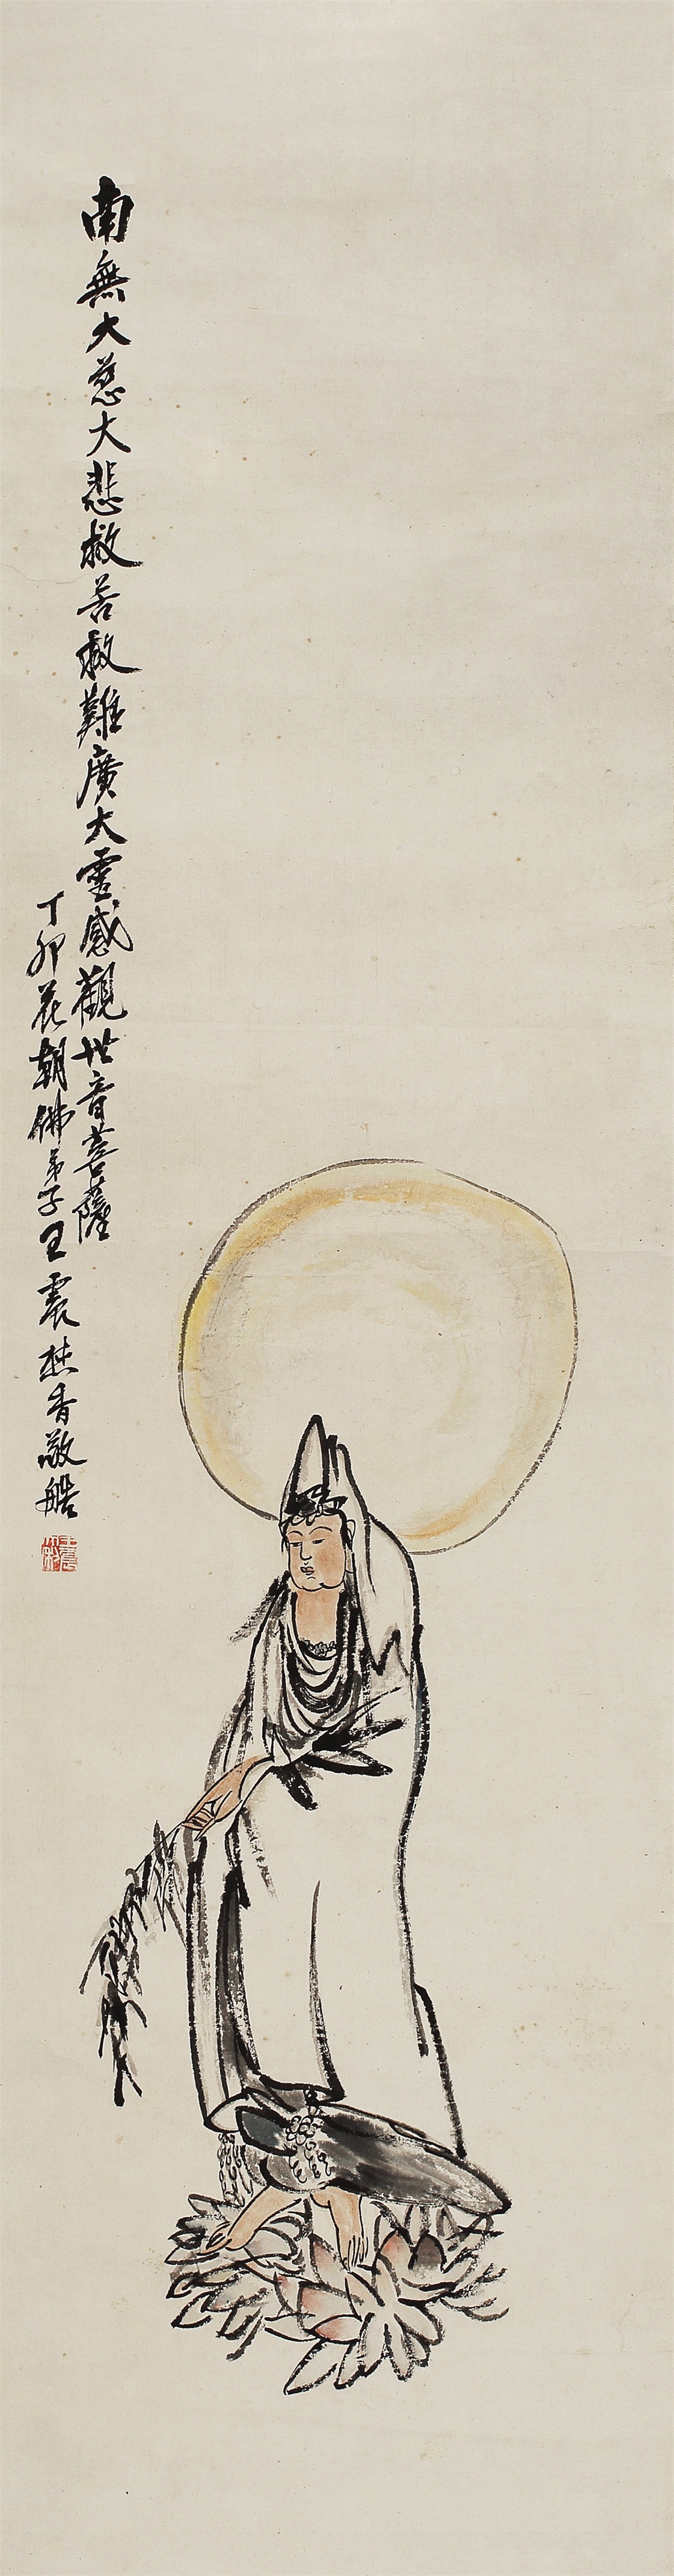 南無大慈大悲救苦救難廣大靈感觀世音菩薩
丁卯花朝佛弟子王震焚香敬繪